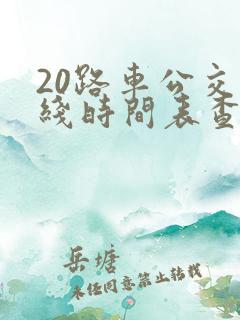 20路车公交
綫時間表查
岳塘
未经同意禁止转载